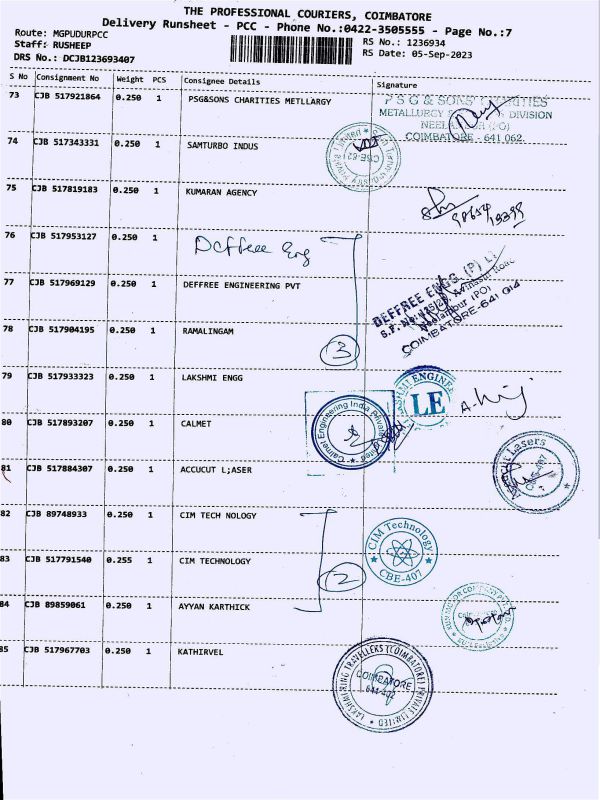 THE PROFESSIONAL COURIERS, COIMBATORE
Delivery Runsheet - PCC - Phone No.:0422-3505555 - Page No.:7
Route: MGPUDURPCC
RS No.: 1236934
Staff: RUSHEEP
RS Date: 05-Sep-2023
DRS No.: DCJB123693407
S No Consignment No Weight PCS Consignee Details Signature
73 CJB 517921864 0.250 1 PSG&SONS CHARITIES METLLARGY
P S G & SONS' CHARITIES
METALLURGY DIVISION
NEELAMBUR (PO)
COIMBATORE - 641 062.
74 CJB 517343331 0.250 1 SAMTURBO INDUS
75 CJB 517819183 0.250 1 KUMARAN AGENCY
76 CJB 517953127 0.250 1 Deffree Eng
77 CJB 517969129 0.250 1 DEFFREE ENGINEERING PVT
DEFFREE ENGG. (P) L
Neelambur (PO)
COIMBATORE-641 014
78 CJB 517904195 0.250 1 RAMALINGAM
3
79 CJB 517933323 0.250 1 LAKSHMI ENGG
LE
80 CJB 517893207 0.250 1 CALMET
Calmet Engineering India Private Limited
81 CJB 517884307 0.250 1 ACCUCUT L;ASER
Lasers
CBE-407
82 CJB 89748933 0.250 1 CIM TECH NOLOGY
CIM Technology
CBE-407
83 CJB 517791540 0.255 1 CIM TECHNOLOGY
2
84 CJB 89859061 0.250 1 AYYAN KARTHICK
85 CJB 517967703 0.250 1 KATHIRVEL
LAKSHMIRING TRAVELLERS (COIMBATORE) PRIVATE LIMITED
COIMBATORE
641 402